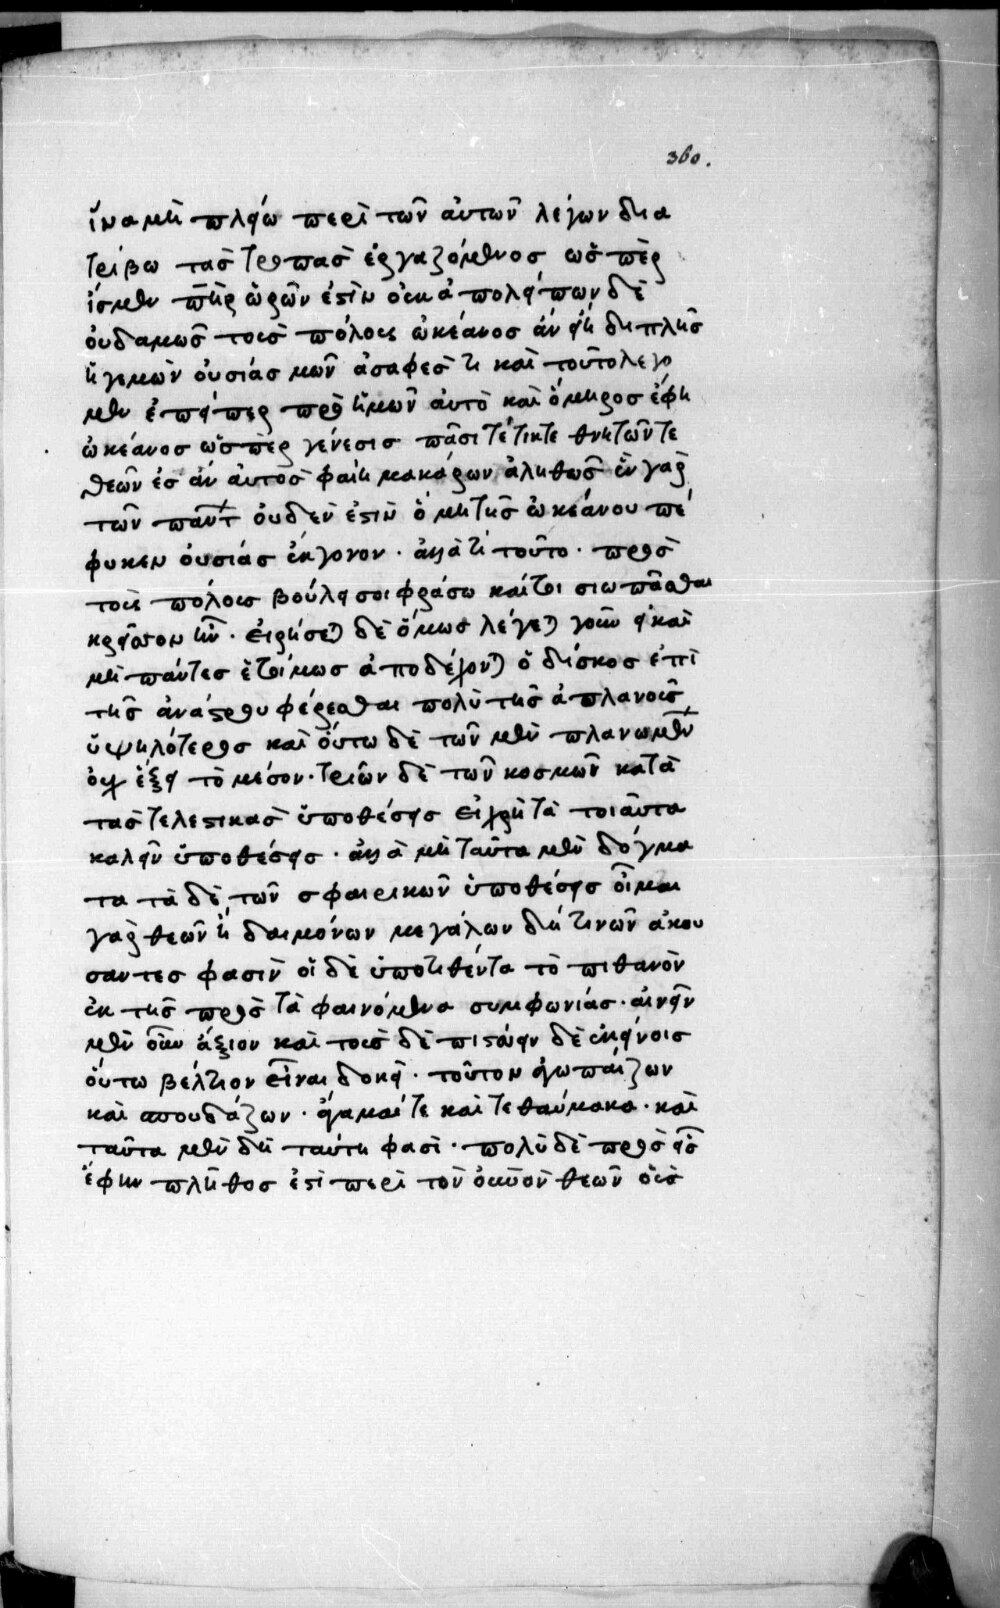 360.
ἵνα μὴ πλείω περὶ τῶν αὐτῶν λέγων δια
τρίβω τὰς τροπὰς ἐργαζόμενος ὥσπερ
ἴσμεν πατὴρ ὡρῶν ἐστὶν οὐκ ἀπολείπων δὲ
οὐδαμῶς τοὺς πόλους ὠκεανὸς ἂν εἴη διπλῆς
ἡγεμὼν οὐσίας μῶν ἀσαφές τι καὶ τοῦτο λέγο
μεν ἐπείπερ πρὸ ἡμῶν αὐτὸ καὶ ὅμηρος ἔφη
ὠκεανὸς ὥσπερ γένεσις πᾶσι τέτικτε θνητῶν τε
θεῶν ἐσ ἂν αὐτὸς φαίη μακάρων ἀληθῶς ἓν γὰρ
τῶν πάντ οὐδέν ἐστιν ὃ μὴ τῆς ὠκεανοῦ πέ
φυκεν οὐσίας ἔκγονον · ἀλλὰ τί τοῦτο · πρὸς
τοὺς πόλους βούλει σοι φράσω καίτοι σιωπᾶσθαι
κρεῖσσον ἦν · εἰρήσεται δὲ ὅμως λέγεται γοῦν εἰ καὶ
μὴ πάντες ἑτοίμως ἀποδέχονται ὁ δίσκος ἐπὶ
τῆς ἀνάστρου φέρεσθαι πολὺ τῆς ἀπλανοῦς
ὑψηλότερος καὶ οὕτω δὲ τῶν μὲν πλανωμένων
οὐχ ἕξει τὸ μέσον · τριῶν δὲ τῶν κόσμων κατὰ
τὰς τελεστικὰς ὑποθέσεις εἰ χρὴ τὰ τοιαῦτα
καλεῖν ὑποθέσεις · ἀλλὰ μὴ ταῦτα μὲν δόγμα
τα τὰ δὲ τῶν σφαιρικῶν ὑποθέσεις οἶμαι
γὰρ θεῶν ἢ δαιμόνων μεγάλων δή τινων ἀκού
σαντες φασὶν οἱ δὲ ὑποτιθέντα τὸ πιθανὸν
ἐκ τῆς πρὸς τὰ φαινόμενα συμφωνίας · αἰνεῖν
μὲν οὖν ἄξιον καὶ τοὺς δὲ πιστεύειν δὲ ἐκείνοις
οὕτω βέλτιον εἶναι δοκεῖ · τοῦτον ἐγὼ παίζων
καὶ σπουδάζων · ἄγαμαί τε καὶ τεθαύμακα · καὶ
ταῦτα μὲν δὴ ταύτη φασὶ · πολὺ δὲ πρὸς οἷς
ἔφην πλῆθος ἐστὶ περὶ τὸν οὐρανὸν θεῶν οὓς